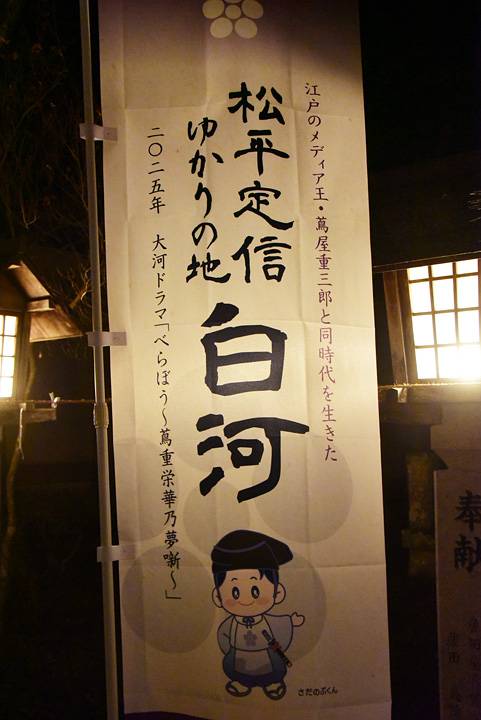 江戸のメディア王・蔦屋重三郎と同時代を生きた
松平定信
ゆかりの地
白河
二〇二五年 大河ドラマ「べらぼう～蔦重栄華乃夢噺～」
さだのぶくん
奉献